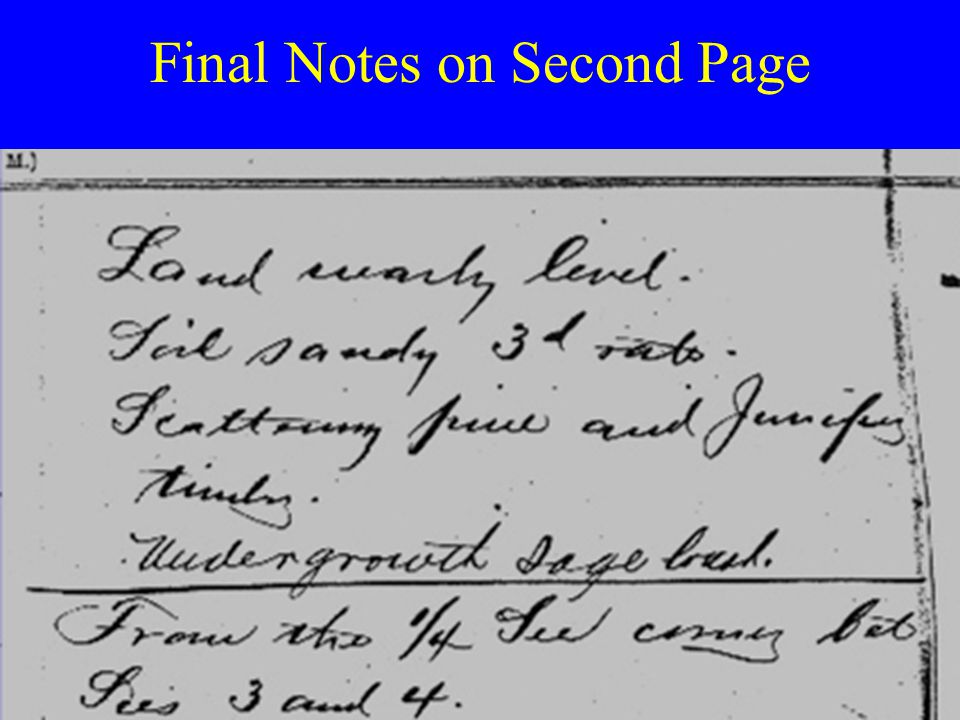 Final Notes on Second Page
M.)
Land nearly level.
Soil sandy 3d rate.
Scattering pine and Juniper
timber.
Undergrowth Sage brush.
From the 1/4 Sec corner bet
Secs 3 and 4.